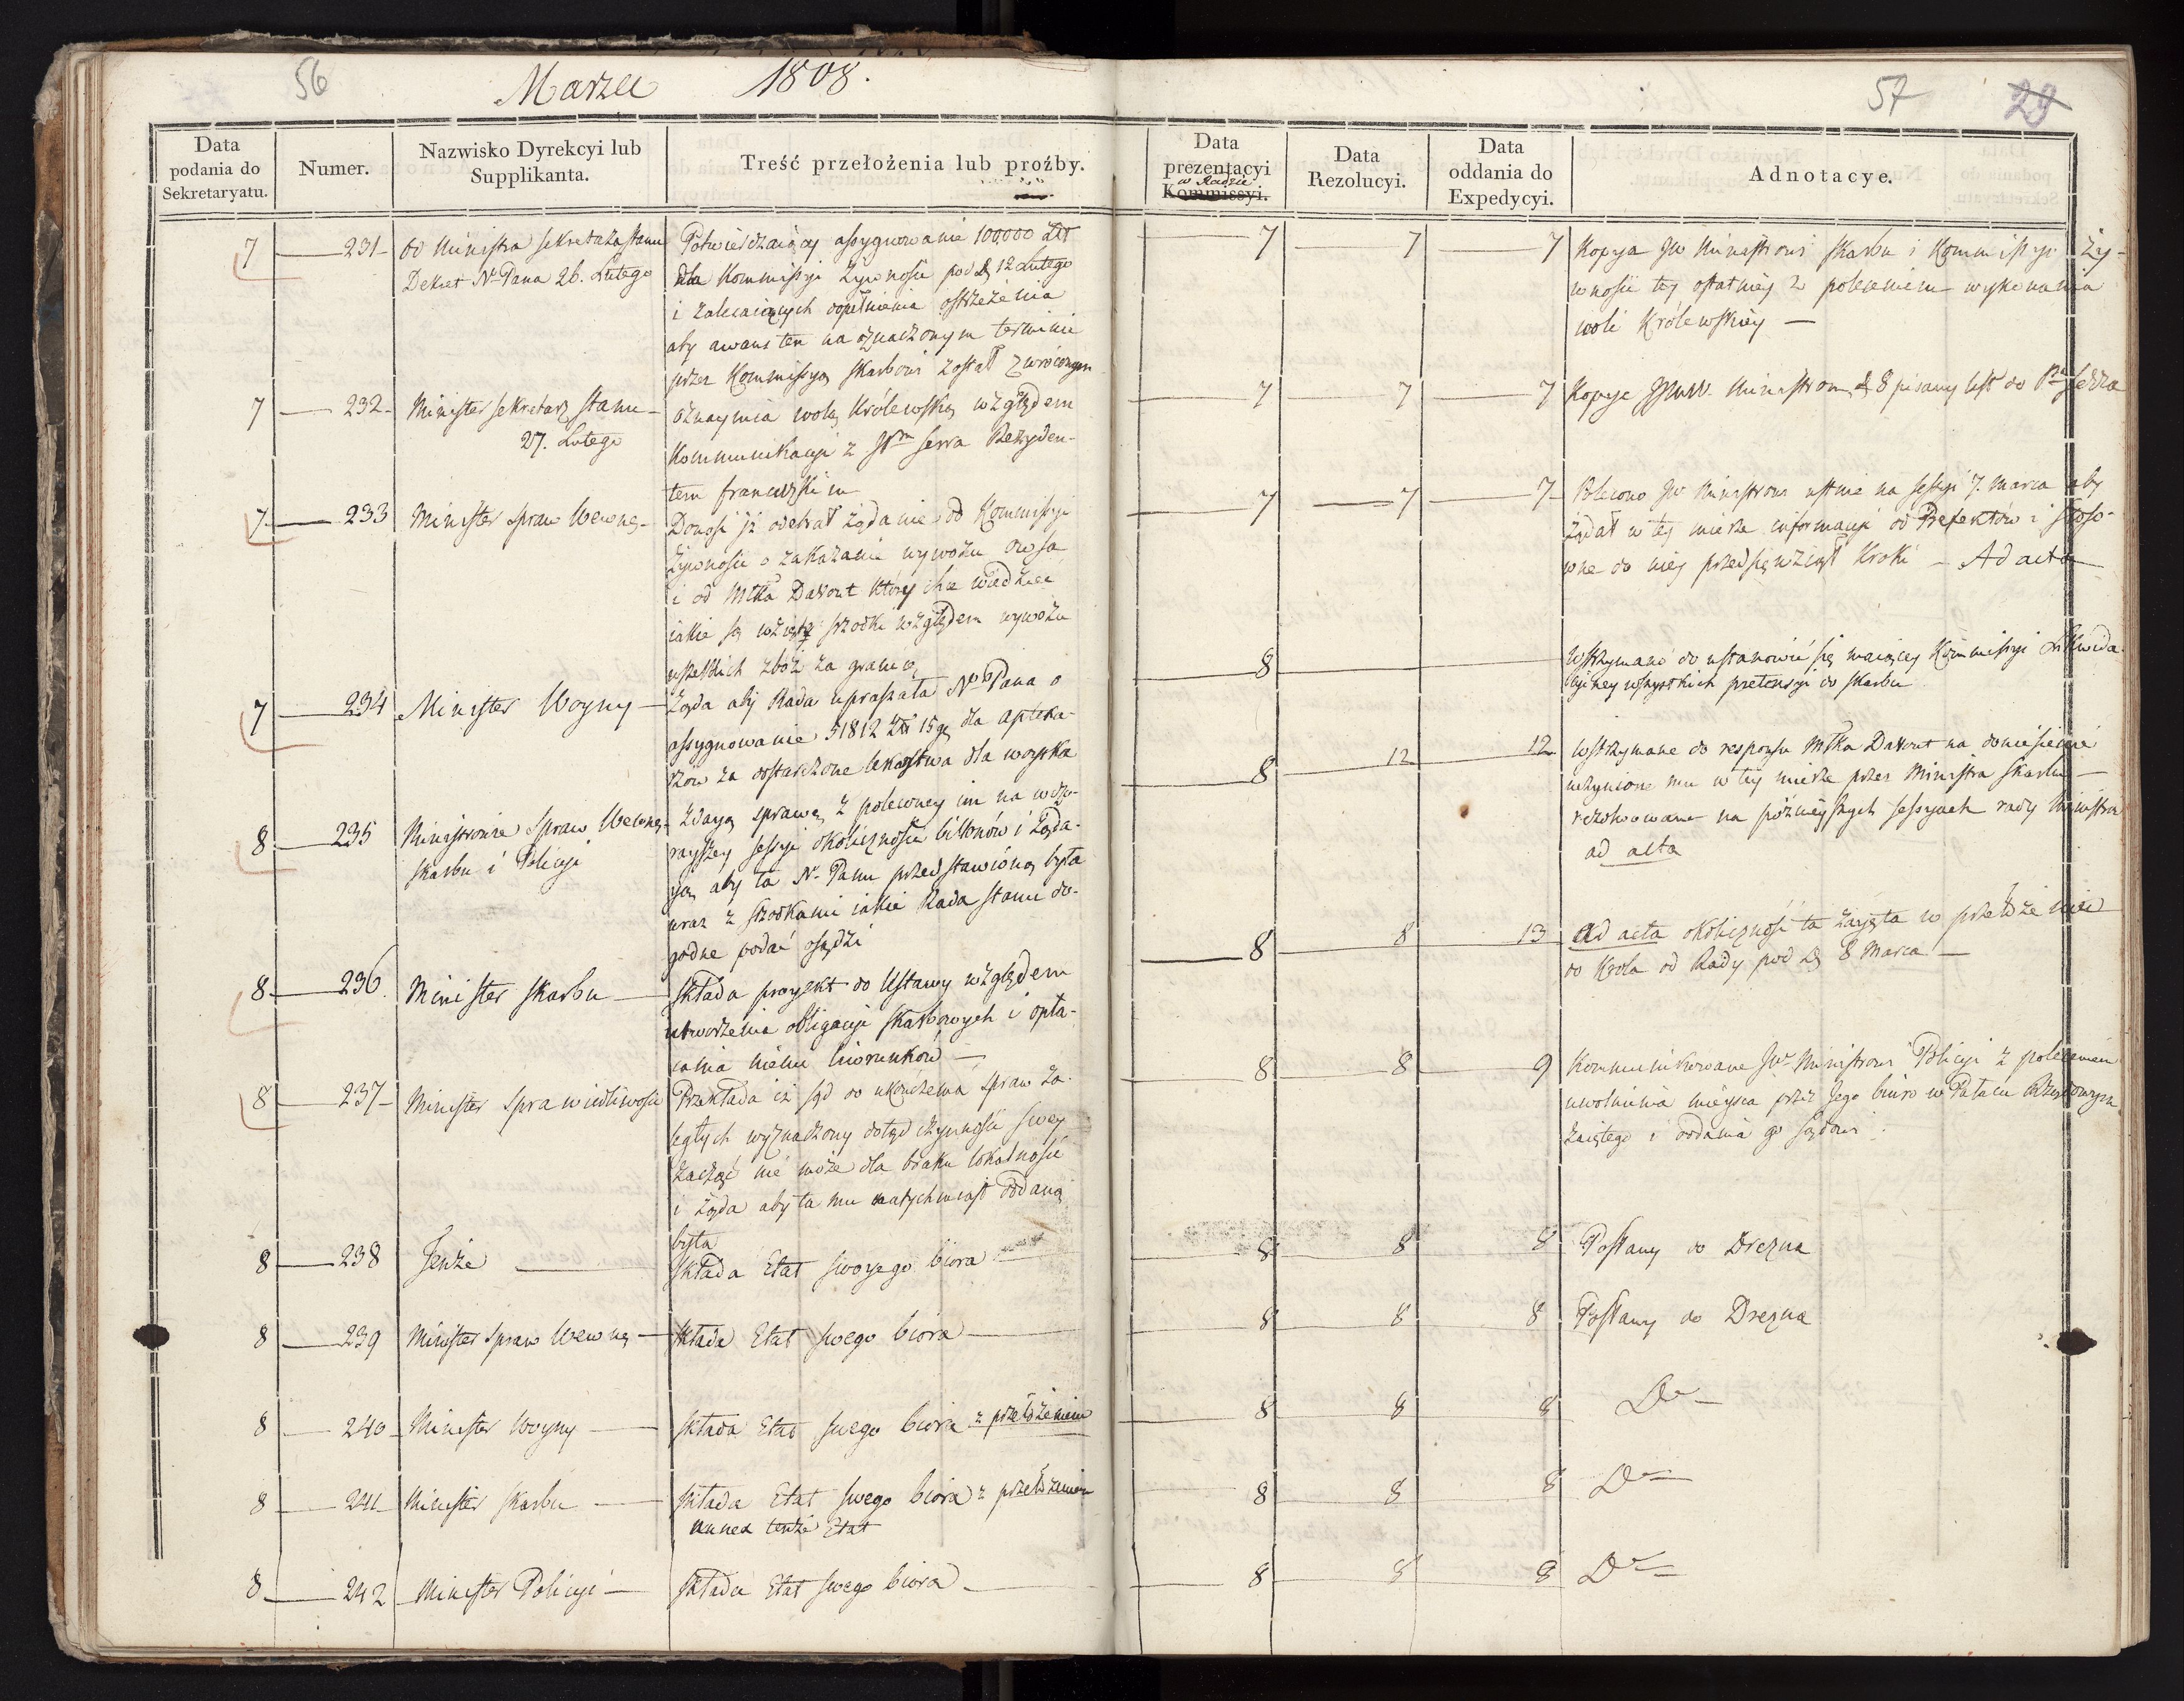 56
Marzec 1808.
57 29
Data podania do Sekretaryatu.
Numer.
Nazwisko Dyrekcyi lub Supplikanta.
Treść przełożenia lub proźby.
Data prezentacyi w Radzie Kommissyi.
Data Rezolucyi.
Data oddania do Expedycyi.
Adnotacye.
7 231 Od Ministra Sekretarza Stanu
Dekret N. Pana 26. Lutego
Potwierdzaiący assygnowanie 100,000 Złł
dla Kommissyi Żywności pod D. 12 Lutego
i zalecaiących dopełnienia ostrzeżenia
aby awans ten na oznaczonym terminie
przez Kommissyą Skarbowi został zwróconym
7 7 7
Kopya JW Ministrowi Skarbu i Kommissyi Ży-
wności tey ostatniey z poleceniem wykonania
woli Królewskiey
7 232 Minister Sekretarz Stanu
27. Lutego
Oznaymia wolą Królewską względem
Kommunikacyi z JPm Serra Rezyden-
tem francuzkim
7 7 7
Kopye JJWW. Ministrom, d. 8 pisany list do Pna Serra
7 233 Minister Spraw Wewnę.
Donosi iż odebrał żądanie od Kommissyi
Żywności o zakazanie wywozu owsa
i od Młka Davout który chce wiedzieć
iakie są wzięte srzodki względem wywozu
wszelkich zbóż za granicę
7 7 7
Polecono JW Ministrowi ustnie na Sessyi 7. Marca aby
żądał w tey mierze informacyi od Prefektów i stoso-
wne do niey przedsięwziął kroki – Ad acta
7 234 Minister Woyny
Żąda aby Rada upraszała N. Pana o
assygnowanie 51812 Złł 15 g. dla apteka-
rzów za dostarczone lekarstwa dla woyska
8
Wstrzymano do ustanowić się maiącey Kommissyi Likwida-
cyiney wszystkich pretensyi do skarbu
8 235 Ministrowie Spraw Wewnę.
Skarbu i Policyi
Zdaią sprawę z poleconey im na wczo-
rayszey sessyi okoliczności billonów i żąda-
ią, aby ta N. Panu przedstawioną była
wraz z srzodkami iakie Rada Stanu do-
godne podać osądzi
8 12 12
Wstrzymane do responsu Młka Davout na doniesienie
uczynione mu w tey mierze przez Ministra Skarbu –
rezolwowane na późnieyszych sessyach rady Ministrów
ad acta
8 236. Minister Skarbu
Składa proiekt do Ustawy względem
utworzenia obligacyi Skarbowych i opła-
cania niemi liwerunków –
8 8 13
Ad acta okoliczność ta zaięta w przełożeniu
do Króla od Rady pod D. 8 Marca –
8 237 Minister Sprawiedliwości
Przekłada iż sąd do ukończenia spraw za-
ległych wyznaczony dotąd czynności swey
zacząć nie może dla braku lokalności
i żąda aby ta mu natychmiast oddaną
była
8 8 9
Kommunikowane JW Ministrowi Policyi z poleceniem
uwolnienia mieysca przez Jego biuro w Pałacu Rządowym
zaiętego i oddania go Sądowi.
8 238 Tenże
Składa Etat swoyego biora
8 8 8
Posłany do Drezna
8 239 Minister Spraw Wewnę
Składa Etat swego biora
8 8 8
Posłany do Drezna
8 240 Minister Woyny
Składa Etat swego biora z przełożeniem
8 8 8
Do
8 241 Minister Skarbu
Składa Etat swego biora z przełożeniem
annex tenże Etat
8 8 8
Do
8 242 Minister Policyi
Składa Etat swego biora
8 8 8
Do